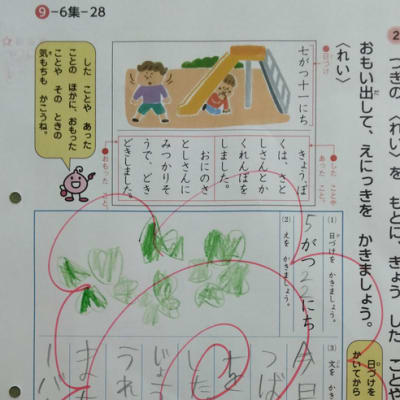 ❾−6集−28
2
つぎの 〈れい〉を もとに、きょう した ことや
おもい出して、えにっきを かきましょう。
〈れい〉
日づけ
七がつ十一にち
した ことや
あった こと。
きょう、ぼ
くは、さと
しさんとか
くれんぼを
しました。
おにのさ
としさんに
みつかりそ
うで、どき
どきしました。
おもった こと。
した ことや あった
ことの ほかに、おもった
ことや その ときの
気もちも かこうね。
(1) 日づけを かきましょう。
5がつ22にち
(2) えを かきましょう。
(3) 文を かき
日づけを
かいてから
今日
つば
した
じょ
うれ
また